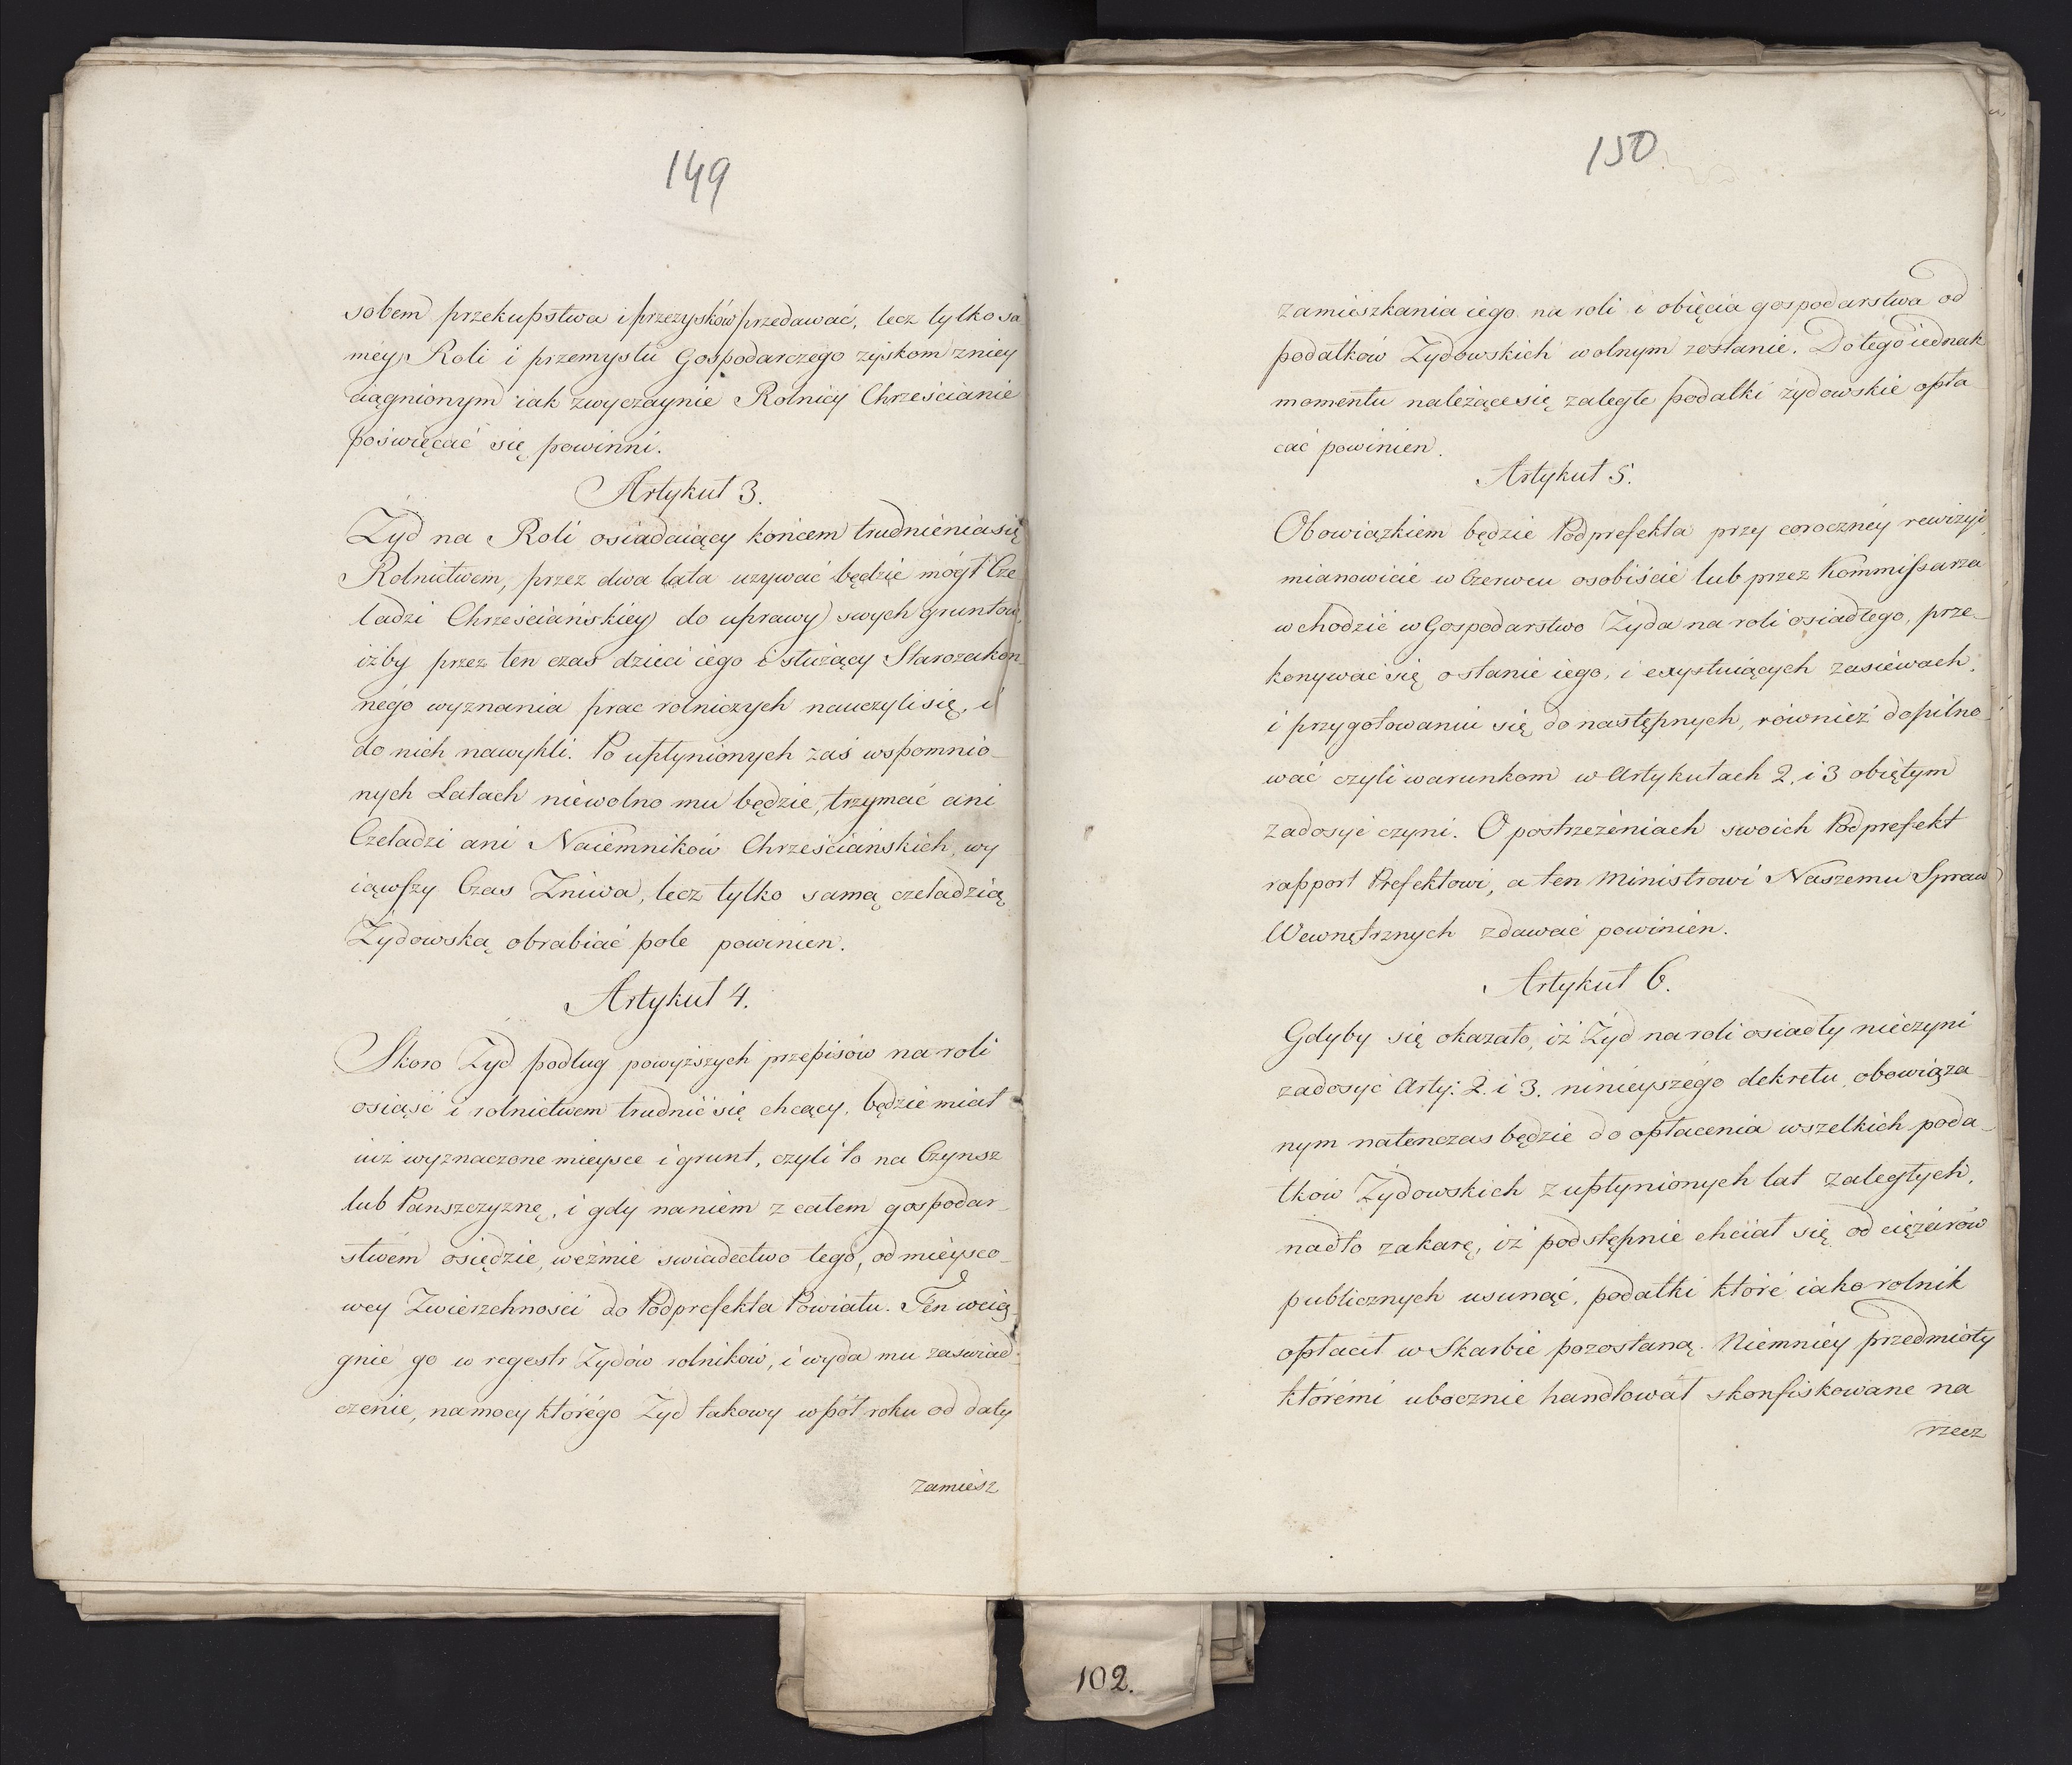 149
sobem przekupstwa i przezysków przedawać, lecz tylko sa
méy Roli i przemysłu Gospodarczego zyskom zniey
ciągnionym iak zwyczaynie Rolnicy Chrześcianie
poświęcać się powinni.
Artykuł 3.
Żyd na Roli osiadaiący końcem trudnienia się
Rolnictwem, przez dwa lata uzywać będzie mógł Cze
ladzi Chrześciańskiey do uprawy swych gruntów,
iżby przez ten czas dzieci iego i służący Starozakon-
négo wyznania prac rolniczych nauczyli się, i
do nich nawykli. Po upłynionych zaś wspomnio-
nych Latach niewolno mu będzie, trzymać ani
Czeladzi ani Naiemników Chrześciańskich, wy
iąwszy Czas Żniwa, lecz tylko samą czeladzią
Żydowską obrabiać pole powinien.
Artykuł 4.
Skoro Żyd podług powyższych przepisów na roli
osiąść i rolnictwem trudnić się chcący, będzie miał
iuż wyznaczone mieysce i grunt, czyli to na Czynsz
lub Panszczyznę, i gdy naniem z całem gospodar-
stwem osiędzie, weźmie swiadectwo tego, od mieysco-
wey Zwierzchności do Podprefekta Powiatu. Ten wcią
gnie go w regestr Żydów rolników, i wyda mu zaswiad-
czenie, na mocy którégo Żyd takowy w pół roku od daty
zamiesz
150
zamieszkania iego na roli i obięcia gospodarstwa od
podatków Żydowskich wolnym zostanie. Do tego iednak
momentu należące się zaległe podatki żydowskie opła
cać powinien.
Artykuł 5.
Obowiązkiem będzie Podprefekta przy coroczney rewizyi,
mianowicie w Czerwcu osobiście lub przez Kommissarza
wchodzić w Gospodarstwo Żyda na roli osiadłego, prze-
konywać się o stanie iego, i exystuiących zasiewach,
i przygotowaniu się do następnych, również dopilno-
wać czyli warunkom w Artykułach 2. i 3 obiętym
zadosyć czyni. O postrzeżeniach swoich Podprefekt
rapport Prefektowi, a ten Ministrowi Naszemu Spraw
Wewnętrznych zdawać powinien.
Artykuł 6.
Gdyby się okazało, iż Żyd na roli osiadły nieczyni
zadosyć Arty: 2. i 3. ninieyszégo dekretu, obowiąza-
nym natenczas będzie do opłacenia wszelkich poda-
tków Żydowskich z upłynionych lat zaległych,
nadto zakarę, iż podstępnie chciał się od ciężarów
publicznych usunąć, podatki które iako rolnik
opłacił w Skarbie pozostaną. Niemniey przedmioty
któremi ubocznie handlował skonfiskowane na
rzecz
102.